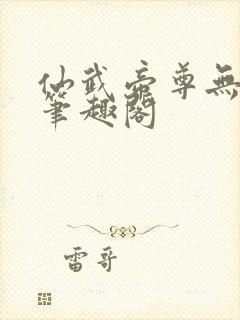 仙武帝尊無
筆趣閣
雷哥